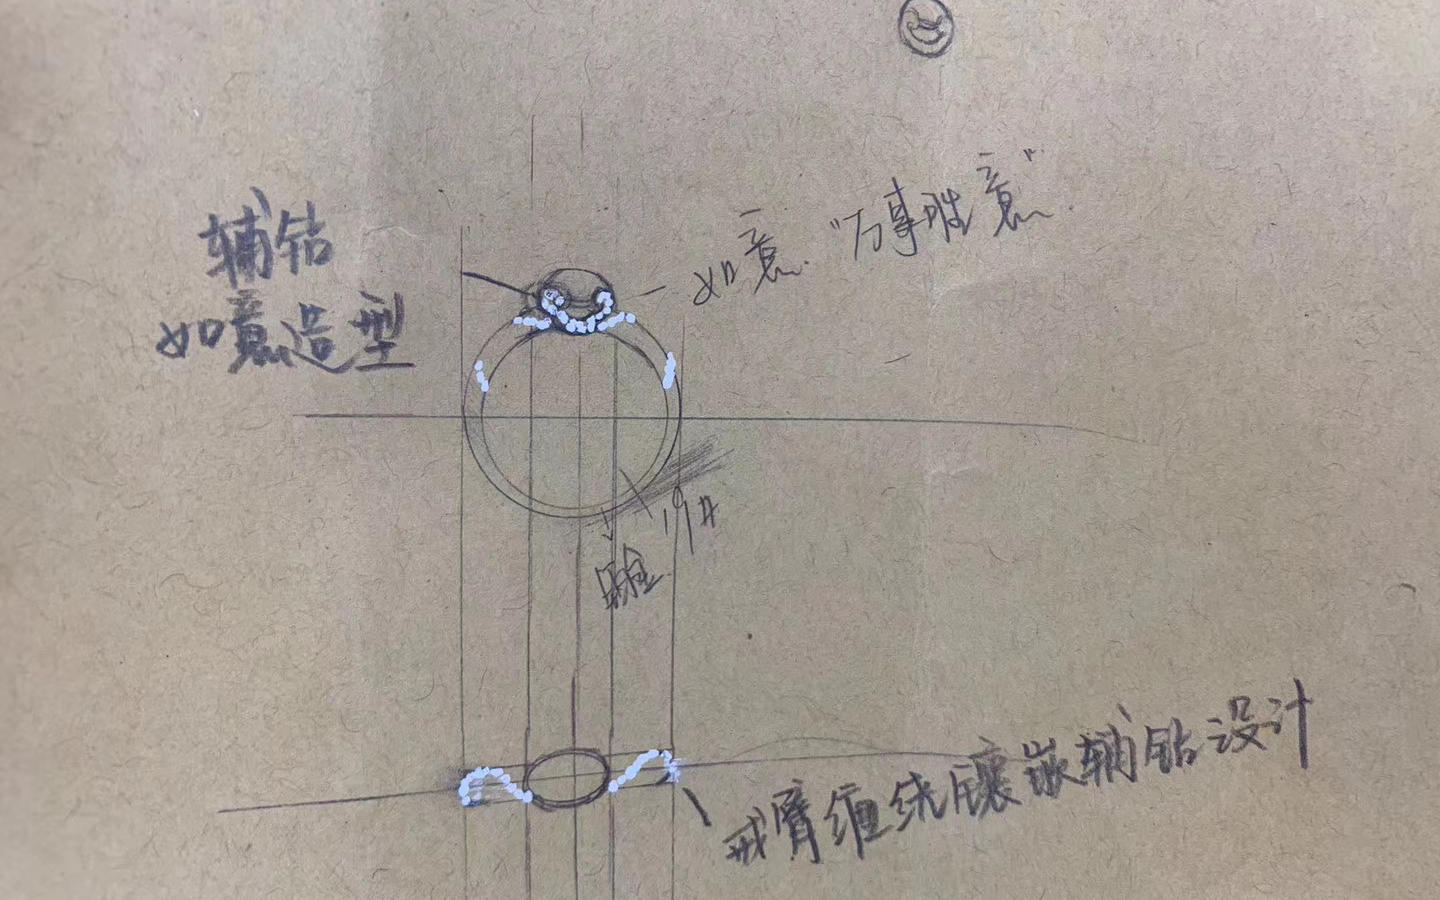 辅钻
如意造型
如意.“万事胜意”.
19#
戒臂缠绕镶嵌辅钻设计